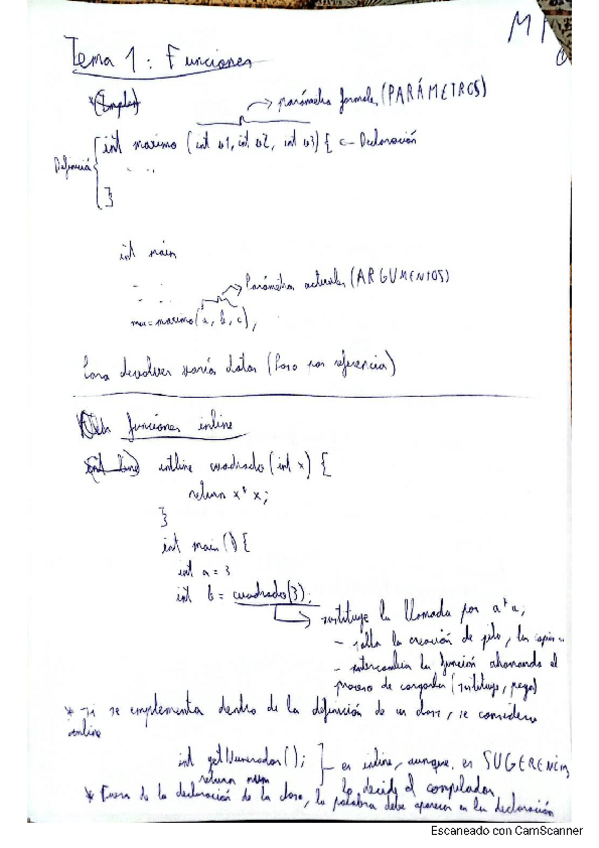 MP
1
Tema 1: Funciones
*(Emplea)
parámetros formales (PARÁMETROS)
int maximo (int v1, int v2, int v3) { ← Declaración
Definición
....
}
int main
- ..
- ..
Parámetros actuales (ARGUMENTOS)
max = maximo(a, b, c);
Para devolver varios datos (Paso por referencia)
funciones inline
intline cuadrado (int x) {
return x * x;
}
int main() {
int a = 3
int b = cuadrado(3);
sustituye la llamada por a * a;
- salta la creación de pila, las copias
- intercambia la función ahorrando el
proceso de cargarla (sustituye, pega)
* si se implementa dentro de la definición de un clase, se considera
inline
int getNumerador();
return num
es inline, aunque es SUGERENCIA,
lo decide el compilador
* Fuera de la declaración de la clase, la palabra debe aparecer en la declaración
Escaneado con CamScanner